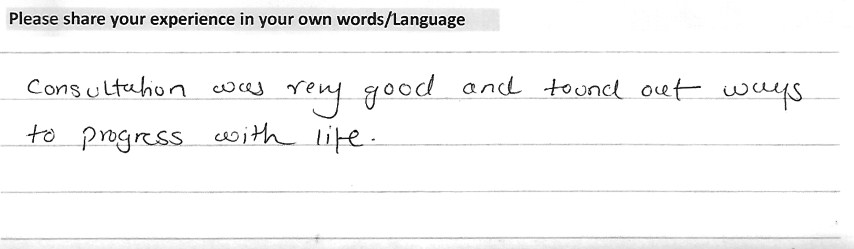 Please share your experience in your own words/Language
Consultation was very good and found out ways
to progress with life.